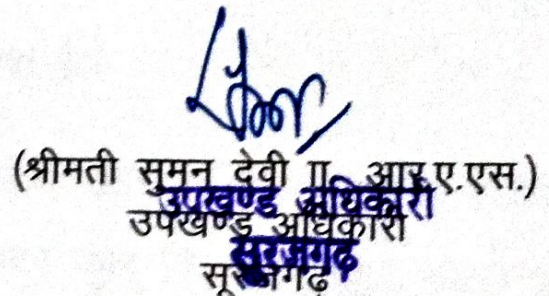 (श्रीमती सुमन देवी आर.ए.एस.)
उपखण्ड अधिकारी
उपखण्ड अधिकारी
सूरजगढ़
सूरजगढ़